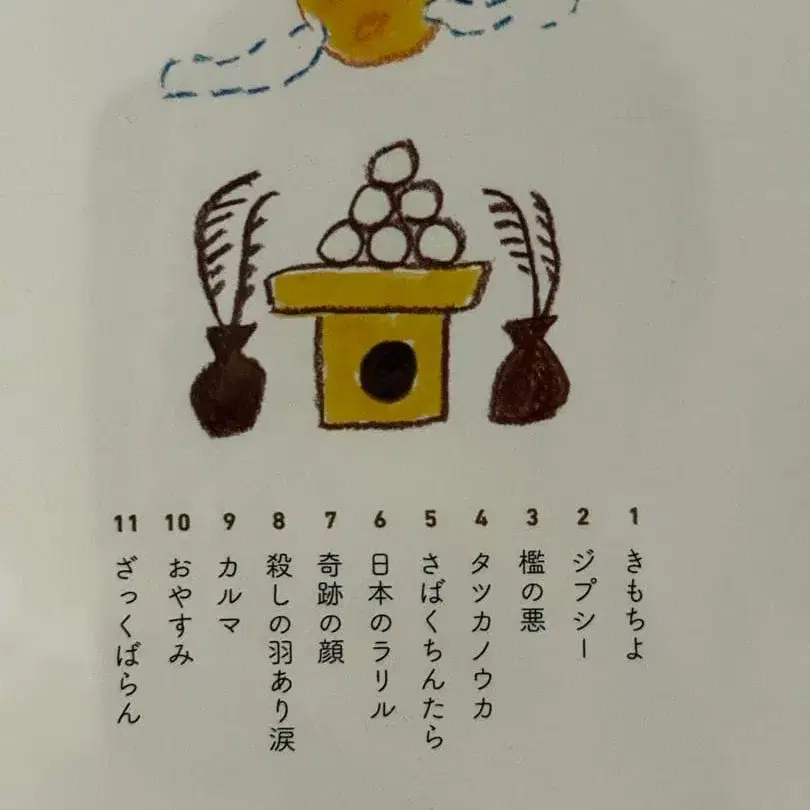 1 きもちよ
2 ジプシー
3 檻の悪
4 タツカノウカ
5 さばくちんたら
6 日本のラリル
7 奇跡の顔
8 殺しの羽あり涙
9 カルマ
10 おやすみ
11 ざっくばらん